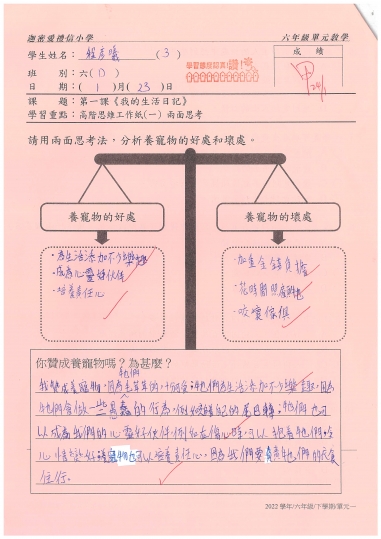 迦密愛禮信小學
六年級單元教學
學生姓名：程彥曦（3）
成績
甲
班別：六（D）
日期：（1）月（23）日
課題：第一課《我的生活日記》
學習重點：高階思維工作紙(一) 兩面思考
請用兩面思考法，分析養寵物的好處和壞處。
養寵物的好處
養寵物的壞處
·為生活添加不少樂趣
·成為心靈好伙伴
·培養責任心
·加重金錢負擔
·花時間照顧牠
·咬壞傢俱
你贊成養寵物嗎？為甚麼？
牠們
我贊成養寵物，因為毛茸茸的，十分可愛；牠們為生活添加不少樂趣，因為
牠們會做一些愚蠢的行為，例如追自己的尾巴轉；牠們也可
以成為我們的心靈好伙伴，例如在傷心時，可以抱着牠們，
心情會好轉；寵物也可以培養責任心，因為我們要負責牠們的衣食
住行。
2022學年/六年級/下學期/單元一